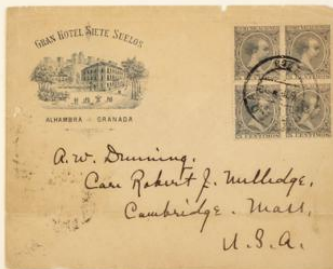 GRAN HOTEL SIETE SUELOS
ALHAMBRA - GRANADA
A. W. Drunning,
Care Robert J. Millidge,
Cambridge. Mass.
U. S. A.